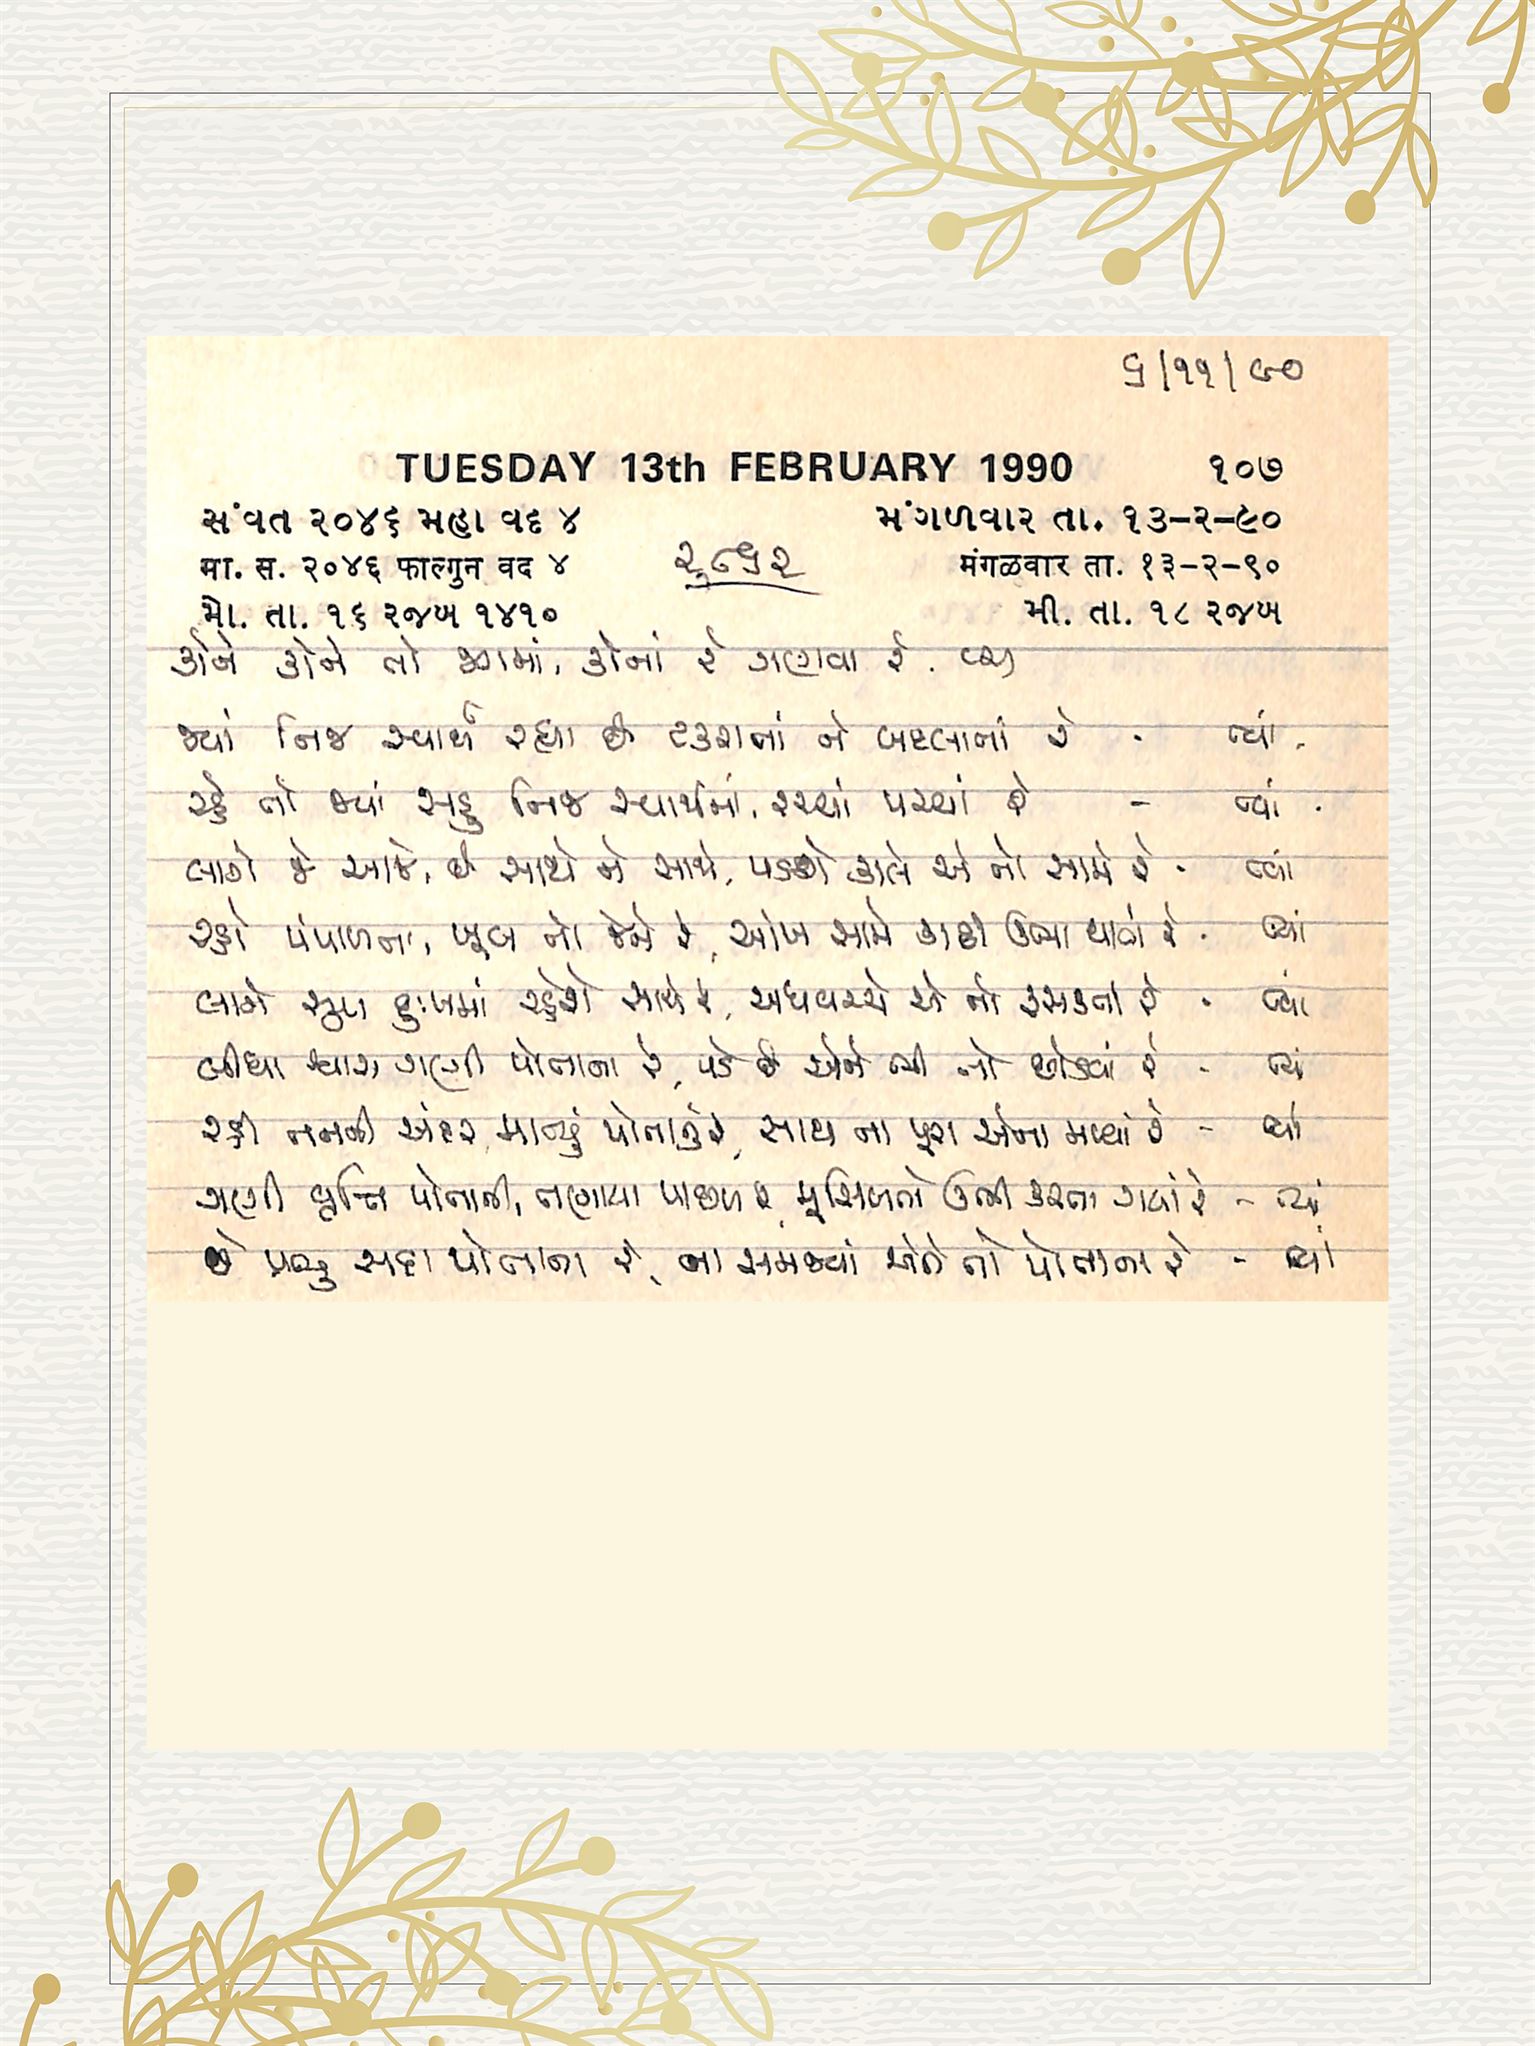 ૬/૧૧/૯૦
TUESDAY 13th FEBRUARY 1990 ૧૦૭
સંવત ૨૦૪૬ મહા વદ ૪ મંગળવાર તા. ૧૩-૨-૯૦
मा. स. २०४६ फाल्गुन वद ४ मंगळवार ता. १३-२-९०
મૌ. તા. ૧૬ રજબ ૧૪૧૦ મી. તા. ૧૮ રજબ
કોને કોને તો જગમાં, કોનાં રે ગણવા રે.
જ્યાં નિજ સ્વાર્થ રહ્યા છે ટકરાતાં ને બદલાતાં રે - જ્યાં.
રહે તો જ્યાં સહુ નિજ સ્વાર્થમાં, રચ્યાં પચ્યાં રે - જ્યાં.
લાગે જે આજે, છે સાથે ને સાથે, પડશે કાલે એ તો સામે રે - જ્યાં
પંપાળતા, ખૂબ તો જેને રે, આંખ સામે કાઢી ઉભા થાતે રે - જ્યાં
લાગે સુખ દુઃખમાં રહેશે સાથે રે, અધવચ્ચે એ તો સરકતાં રે - જ્યાં
લીધા શ્વાસ ગણી પોતાના રે, પડે છે એને ભી તો છોડવાં રે - જ્યાં
રહી તનની અંદર માન્યું પોતાનું રે, સાથ ના પૂરા એના મળ્યાં રે - જ્યાં
ગણી વૃત્તિ પોતાની, તણાયા પાછળ રે, મુસીબતો ઉભી કરતા ગયાં રે - જ્યાં
છે પ્રભુ સદા પોતાના રે, ના સમજ્યાં એને તો પોતાના રે - જ્યાં